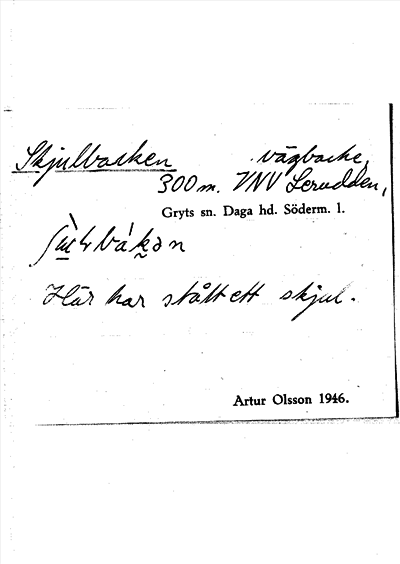 Skjulbacken vägbacke,
300 m. VNV Lerudden,
Gryts sn. Daga hd. Söderm. l.
Här har stått ett skjul.
Artur Olsson 1946.